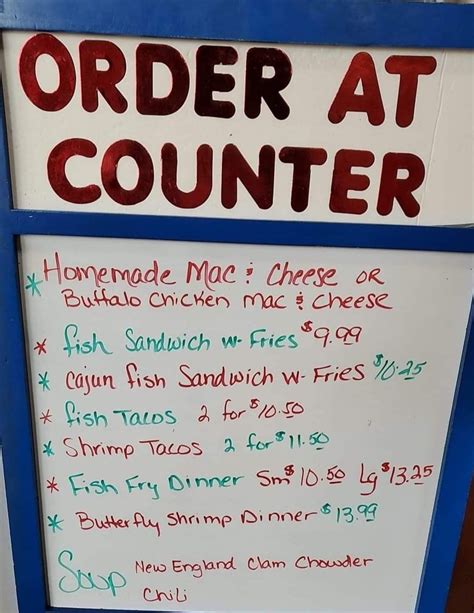 ORDER AT
COUNTER
* Homemade Mac & Cheese OR
Buffalo Chicken Mac & Cheese
* fish Sandwich w- Fries $9.99
* cajun fish Sandwich w- Fries $10.25
* fish Tacos 2 for $10.50
* Shrimp Tacos 2 for $11.50
* Fish Fry Dinner Sm $10.50 Lg $13.25
* Butterfly Shrimp Dinner $13.99
Soup New England Clam Chowder
Chili